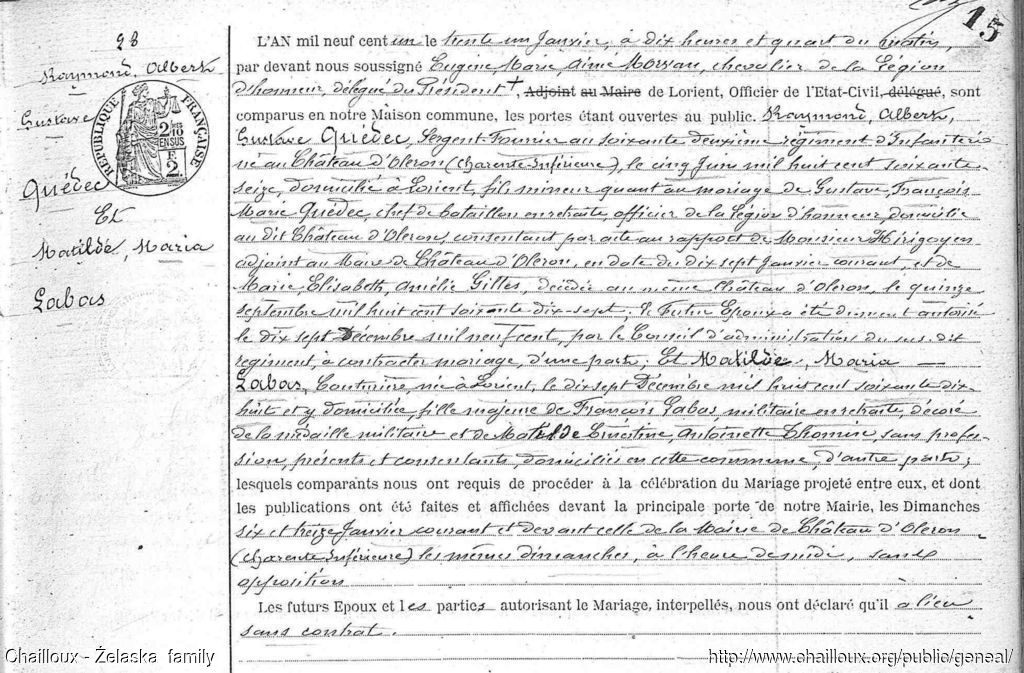 15
28
Raymond, Albert,
Gustave
Quédec
Et
Matilde, Maria
Labas
RÉPUBLIQUE FRANÇAISE
2/10MES
EN SUS
2F
L'AN mil neuf cent un le trente un Janvier, à dix heures et quart du matin,
par devant nous soussigné Eugène, Marie, Aimé Morvan, chevalier de la Légion
d'honneur, délégué du Président +, Adjoint au Maire de Lorient, Officier de l'Etat-Civil, délégué, sont
comparus en notre Maison commune, les portes étant ouvertes au public. Raymond, Albert,
Gustave Quédec, Sergent-Fourrier au soixante deuxième régiment d'Infanterie
né au Château d'Oleron (Charente-Inférieure), le cinq Juin mil huit cent soixante
seize, domicilié à Lorient, fils mineur quant au mariage de Gustave, François
Marie Quedec, chef de bataillon en retraite, officier de la Légion d'honneur, domicilié
au dit Château d'Oleron, consentant par acte au rapport de Monsieur Hirigoyen
adjoint au Maire de Château d'Oleron, en date du dix sept Janvier courant, et de
Marie, Elisabeth, Amélie Gilles, décédée au même Château d'Oleron, le quinze
septembre mil huit cent soixante dix-sept; le Futur Epoux a été dument autorisé
le dix sept Décembre mil neuf cent, par le Conseil d'administration du sus-dit
régiment, à contracter mariage, d'une part; Et Matilde, Maria
Labas, Couturière, née à Lorient, le dix sept Décembre mil huit cent soixante dix
huit et y domiciliée, fille majeure de François Labas, militaire en retraite, décoré
de la médaille militaire et de Matilde Ernestine, Antoinette Thomin, sans profes-
sion, présents et consentants, domiciliés en cette commune, d'autre part;
lesquels comparants nous ont requis de procéder à la célébration du Mariage projeté entre eux, et dont
les publications ont été faites et affichées devant la principale porte de notre Mairie, les Dimanches
six et treize Janvier courant et devant celle de la Mairie de Château d'Oleron
(Charente Inférieure) les mêmes dimanches, à l'heure de midi, sans
opposition
Les futurs Epoux et les parties autorisant le Mariage, interpellés, nous ont déclaré qu'il a lieu
sans contrat.
Chailloux - Żelaska family
http://www.chailloux.org/public/geneal/